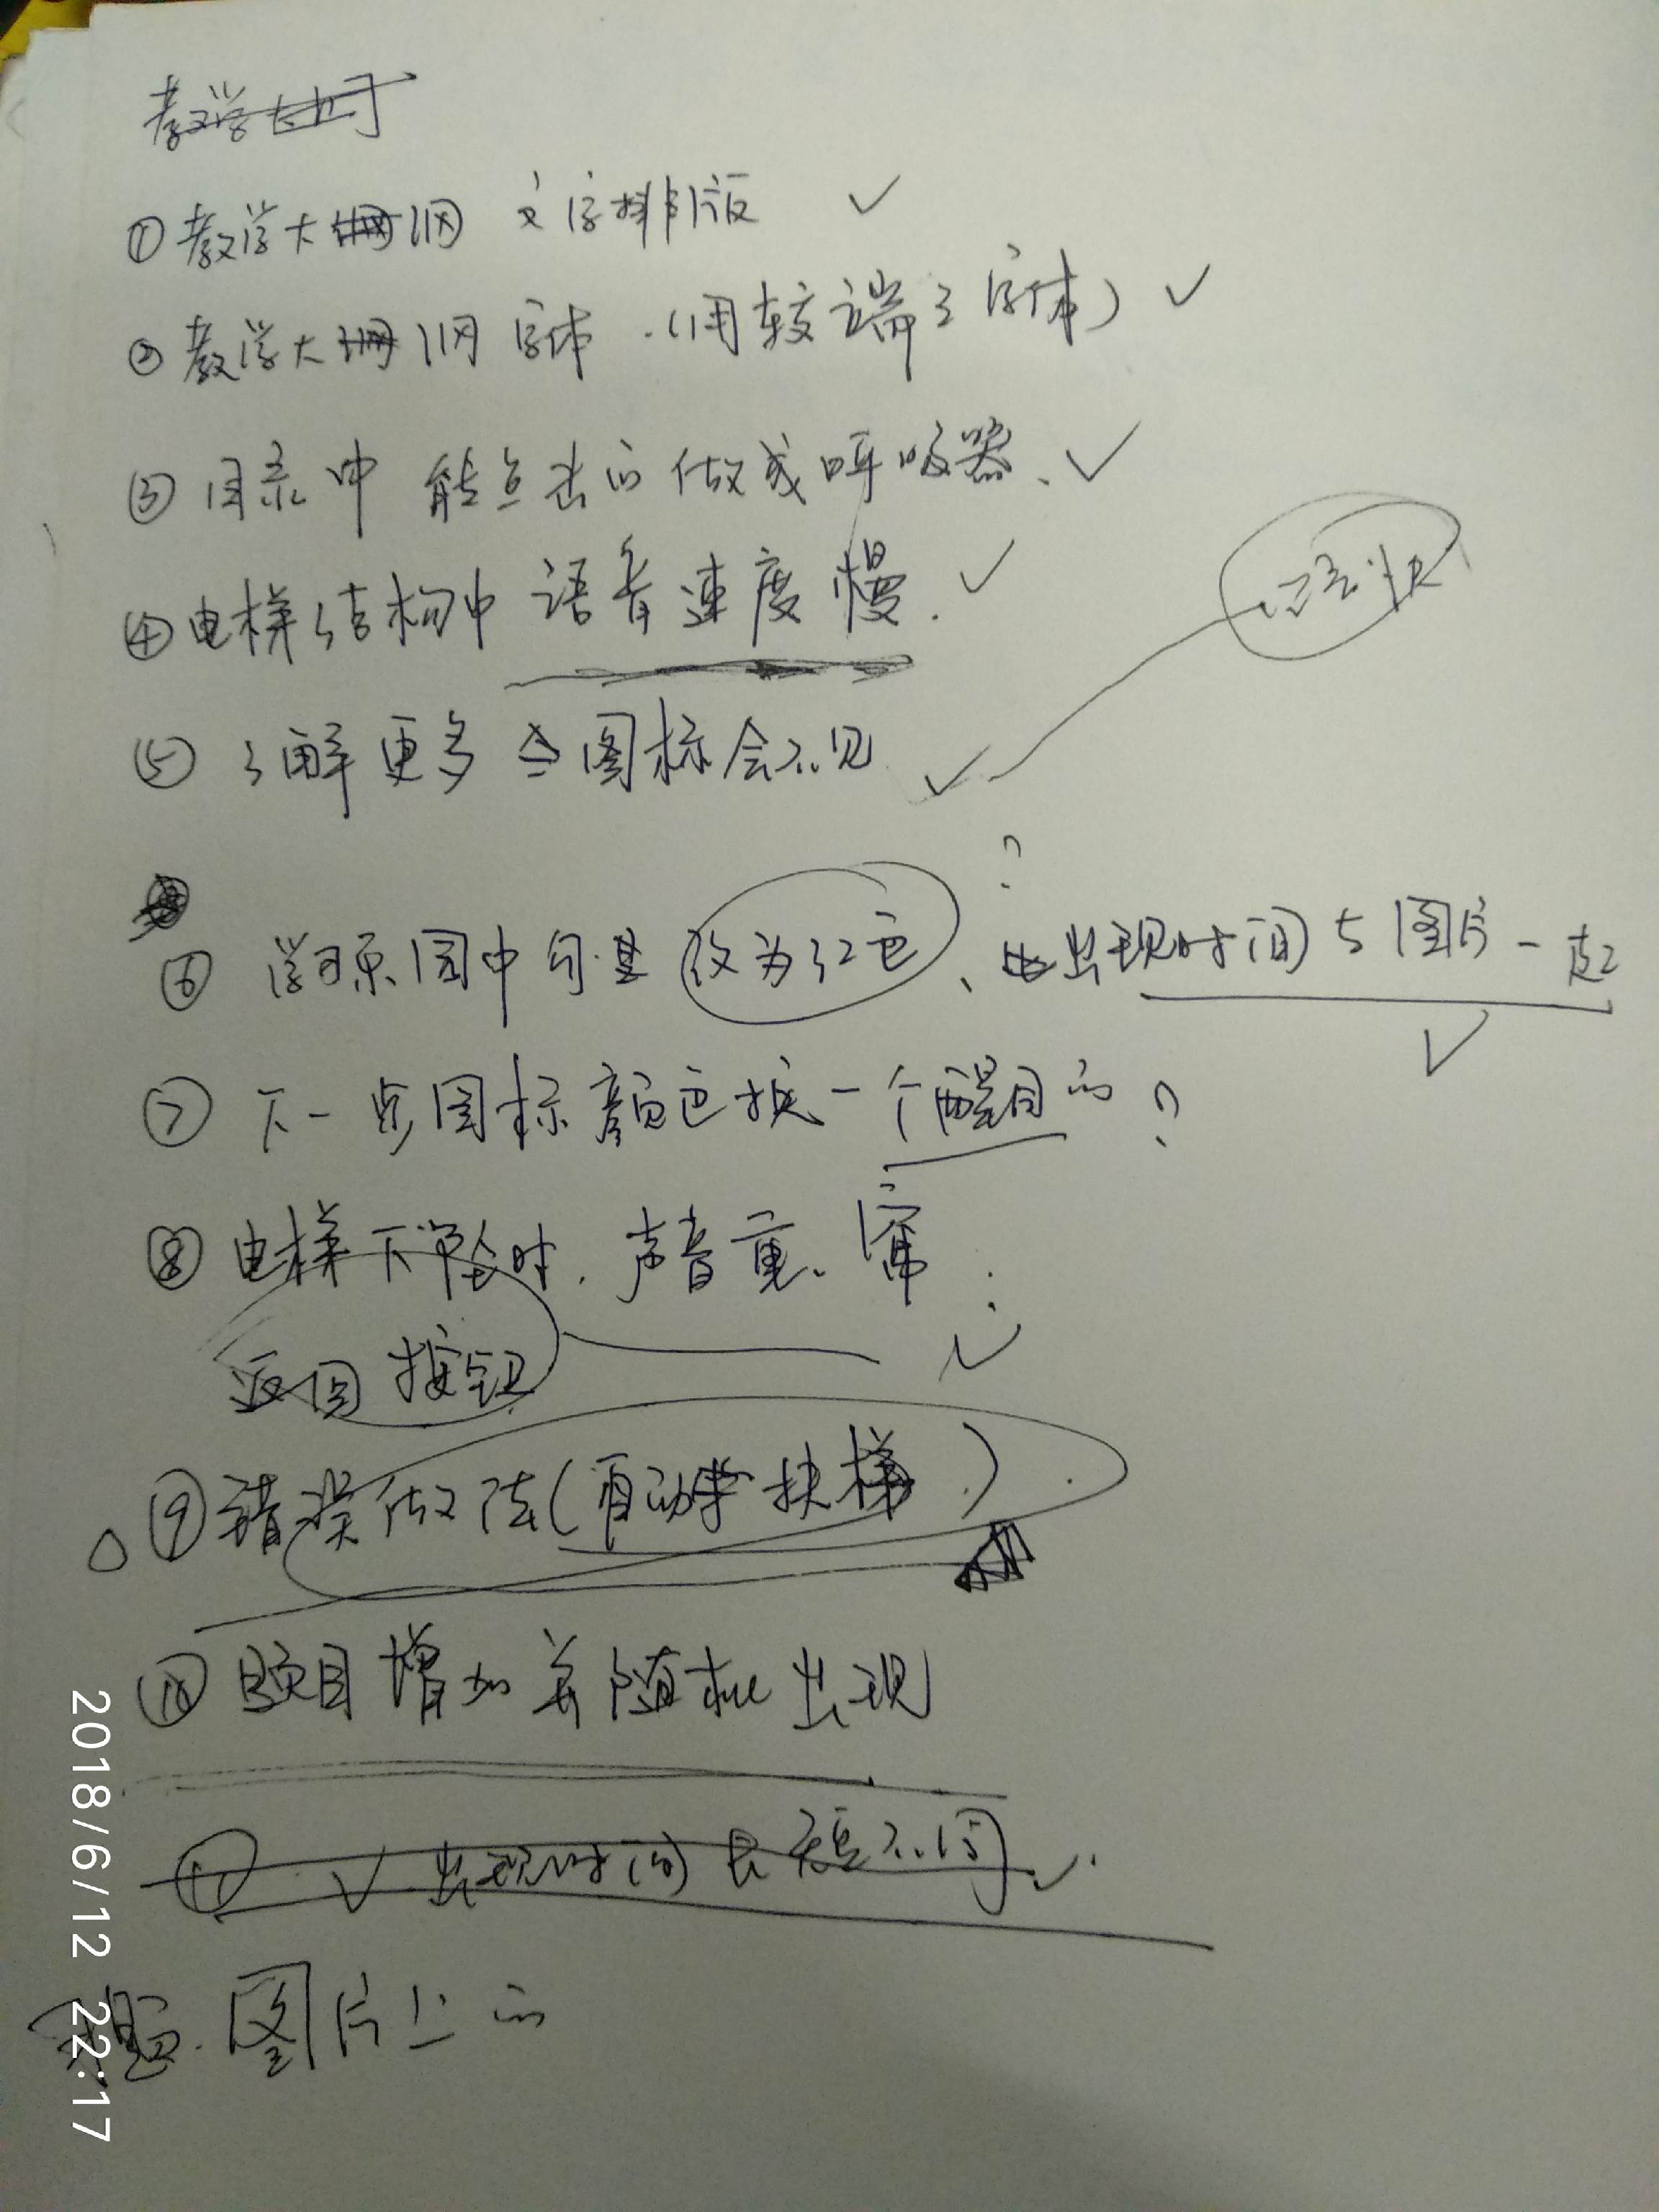 教学
①教学大纲 文字排版 ✓
②教学大纲字体.(用较端正字体) ✓
③目录中 能点击的做成呼吸器、✓
④电梯结构中 语音速度慢. ✓
语快
⑤了解更多 图标会不见 ✓
?
⑥ 学习乐园中 改为红色、出现时间与图片一起
✓
⑦ 下一步图标颜色换一个醒目的?
⑧ 电梯下坠时.声音重、
返回按钮 ✓
⑨错误做法(自动扶梯.)
⑩题目增加并随机出现
⑪ ✓ 出现时间长短不同 ✓.
图片上的
2018/6/12 22:17